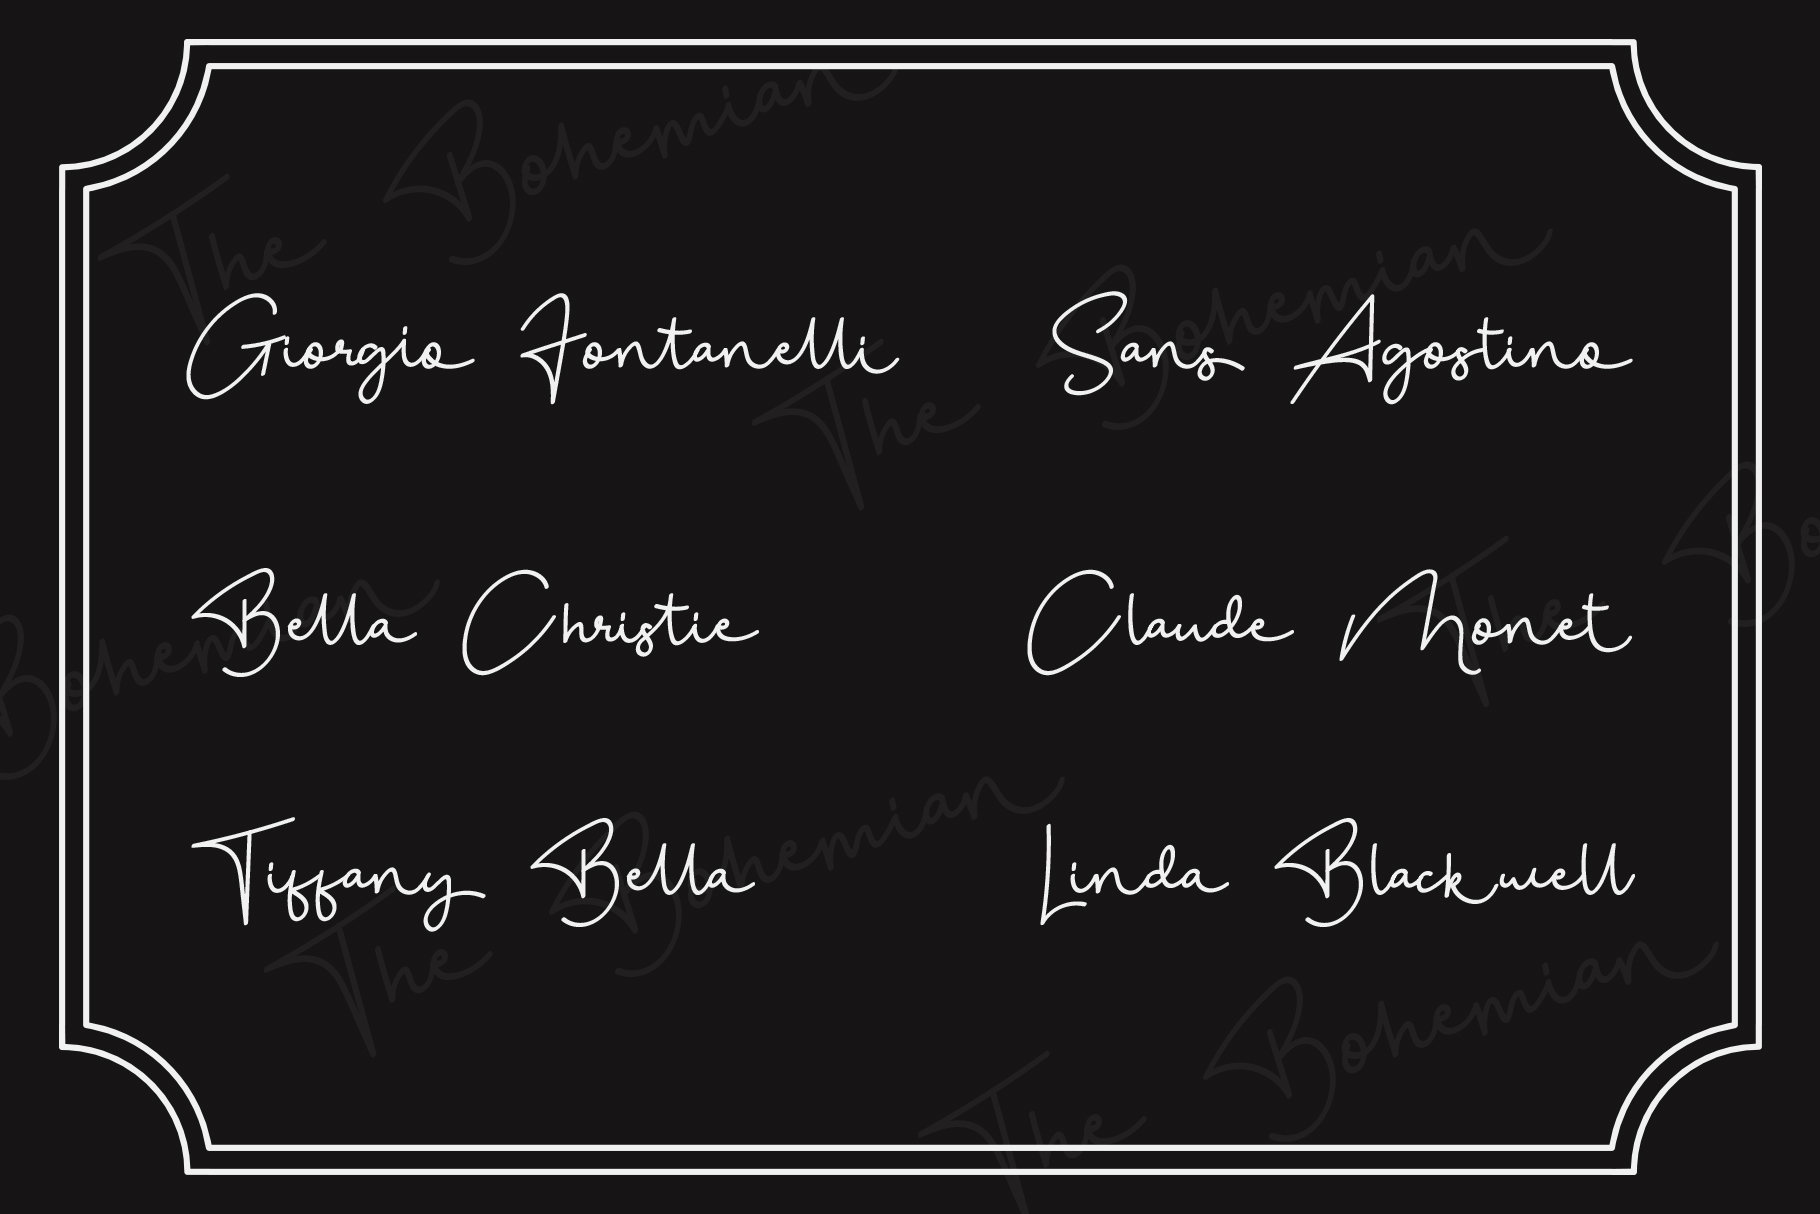 The Bohemian
Giorgio Fontanelli
Sans Agostino
The Bohemian
Bella Christie
Claude Monet
Bohemian
The Bo
Tiffany Bella
Linda Blackwell
The Bohemian
The Bohemian